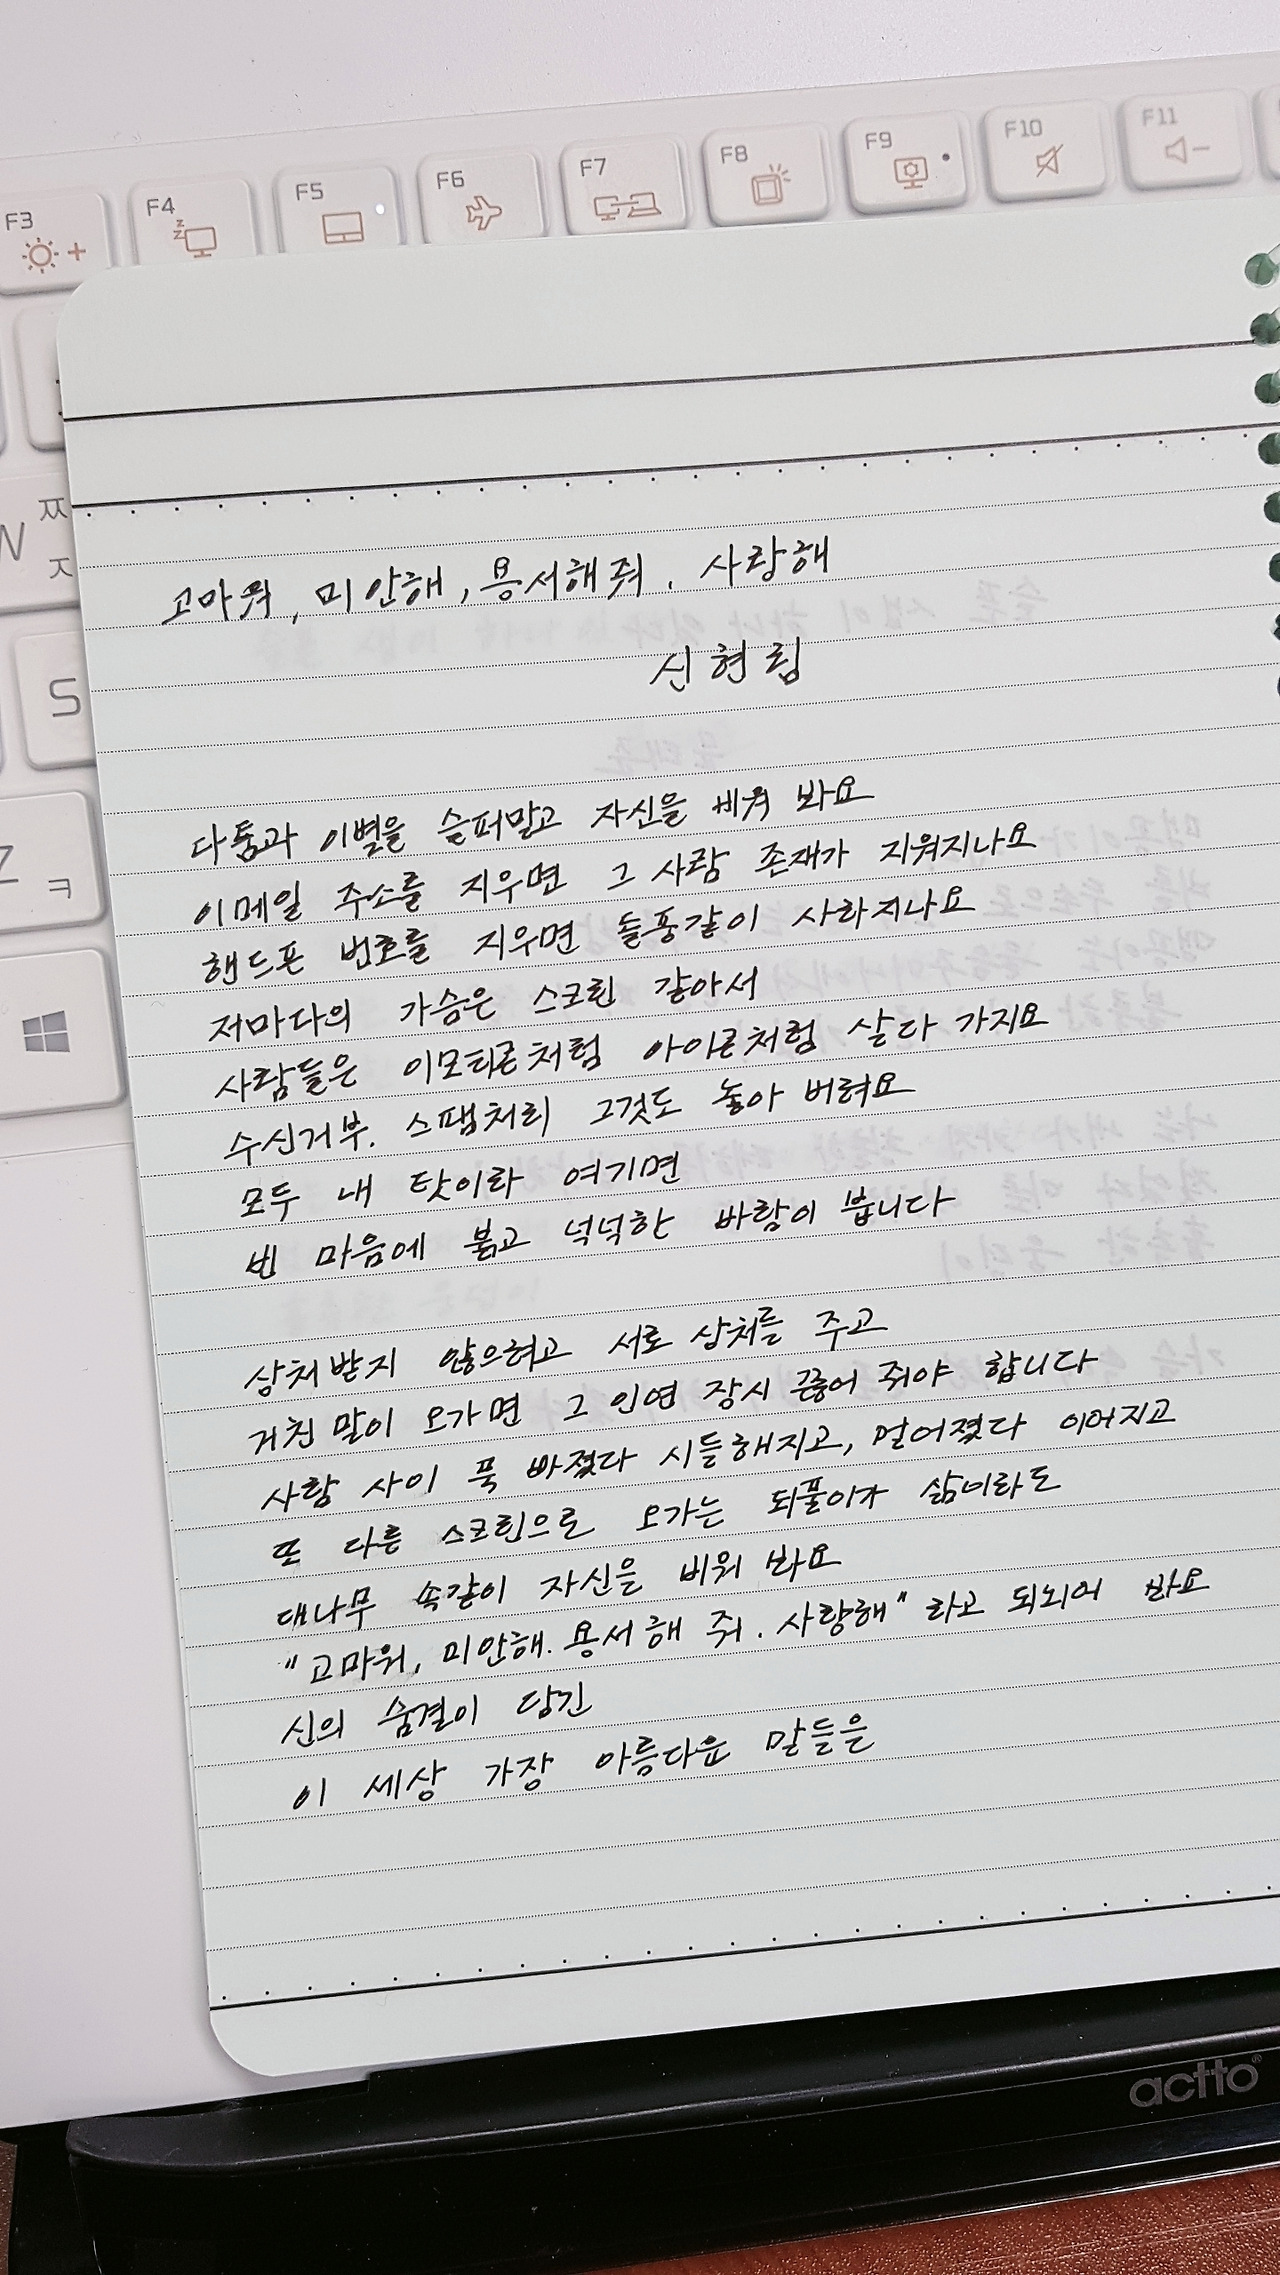 F3
F4
F5
F6
F7
F8
F9
F10
F11
W ㅉ
ㅈ
S
Z ㅋ
고마워, 미안해, 용서해줘. 사랑해
신현림
다툼과 이별을 슬퍼말고 자신을 비워 봐요
이메일 주소를 지우면 그 사람 존재가 지워지나요
핸드폰 번호를 지우면 돌풍같이 사라지나요
저마다의 가슴은 스크린 같아서
사람들은 이모티콘처럼 아이콘처럼 살다 가지요
수신거부. 스팸처리 그것도 놓아 버려요
모두 내 탓이라 여기면
빈 마음에 붉고 넉넉한 바람이 붑니다
상처받지 않으려고 서로 상처를 주고
거친 말이 오가면 그 인연 잠시 끊어 줘야 합니다
사람 사이 푹 빠졌다 시들해지고, 멀어졌다 이어지고
또 다른 스크린으로 오가는 되풀이가 삶이라도
대나무 속같이 자신을 비워 봐요
"고마워, 미안해. 용서해 줘. 사랑해" 라고 되뇌어 봐요
신의 숨결이 담긴
이 세상 가장 아름다운 말들을
actto